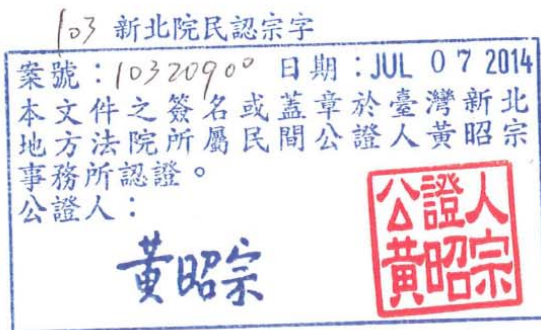 103 新北院民認宗字
案號：10320900 日期：JUL 07 2014
本文件之簽名或蓋章於臺灣新北
地方法院所屬民間公證人黃昭宗
事務所認證。
公證人：
黃昭宗
公證人
黃昭宗